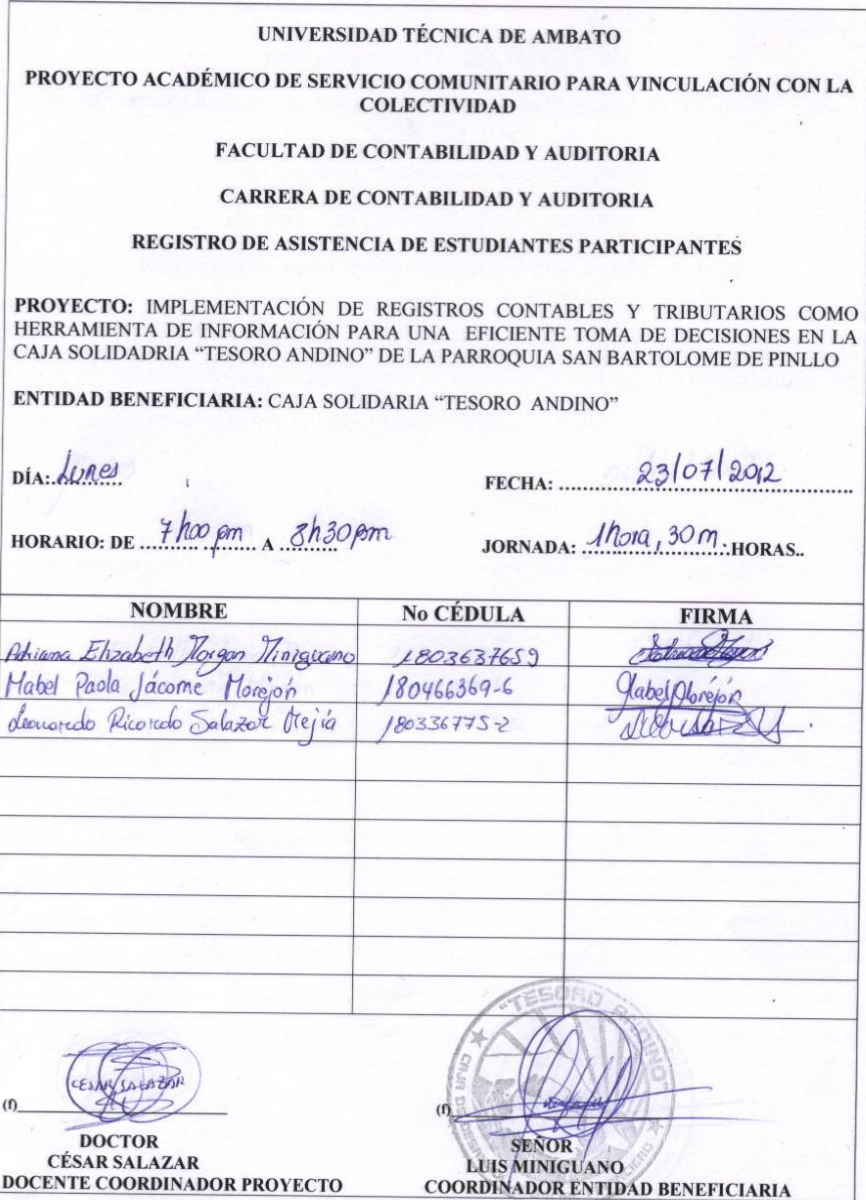 UNIVERSIDAD TÉCNICA DE AMBATO
PROYECTO ACADÉMICO DE SERVICIO COMUNITARIO PARA VINCULACIÓN CON LA
COLECTIVIDAD
FACULTAD DE CONTABILIDAD Y AUDITORIA
CARRERA DE CONTABILIDAD Y AUDITORIA
REGISTRO DE ASISTENCIA DE ESTUDIANTES PARTICIPANTES
PROYECTO: IMPLEMENTACIÓN DE REGISTROS CONTABLES Y TRIBUTARIOS COMO
HERRAMIENTA DE INFORMACIÓN PARA UNA EFICIENTE TOMA DE DECISIONES EN LA
CAJA SOLIDADRIA “TESORO ANDINO” DE LA PARROQUIA SAN BARTOLOME DE PINLLO
ENTIDAD BENEFICIARIA: CAJA SOLIDARIA “TESORO ANDINO”
DÍA: Lunes FECHA: 23/07/2012
HORARIO: DE 7h00 pm A 8h30pm JORNADA: 1hora, 30 m. HORAS..
NOMBRE No CÉDULA FIRMA
Adriana Elizabeth Morgan Miniguano 1803637659
Mabel Paola Jácome Morejón 180466369-6 Mabel Morejón
Leonardo Ricardo Salazar Mejía 180336775-2
"TESORO ANDINO"
CESAR SALAZAR
(f) (f)
DOCTOR SEÑOR
CÉSAR SALAZAR LUIS MINIGUANO
DOCENTE COORDINADOR PROYECTO COORDINADOR ENTIDAD BENEFICIARIA